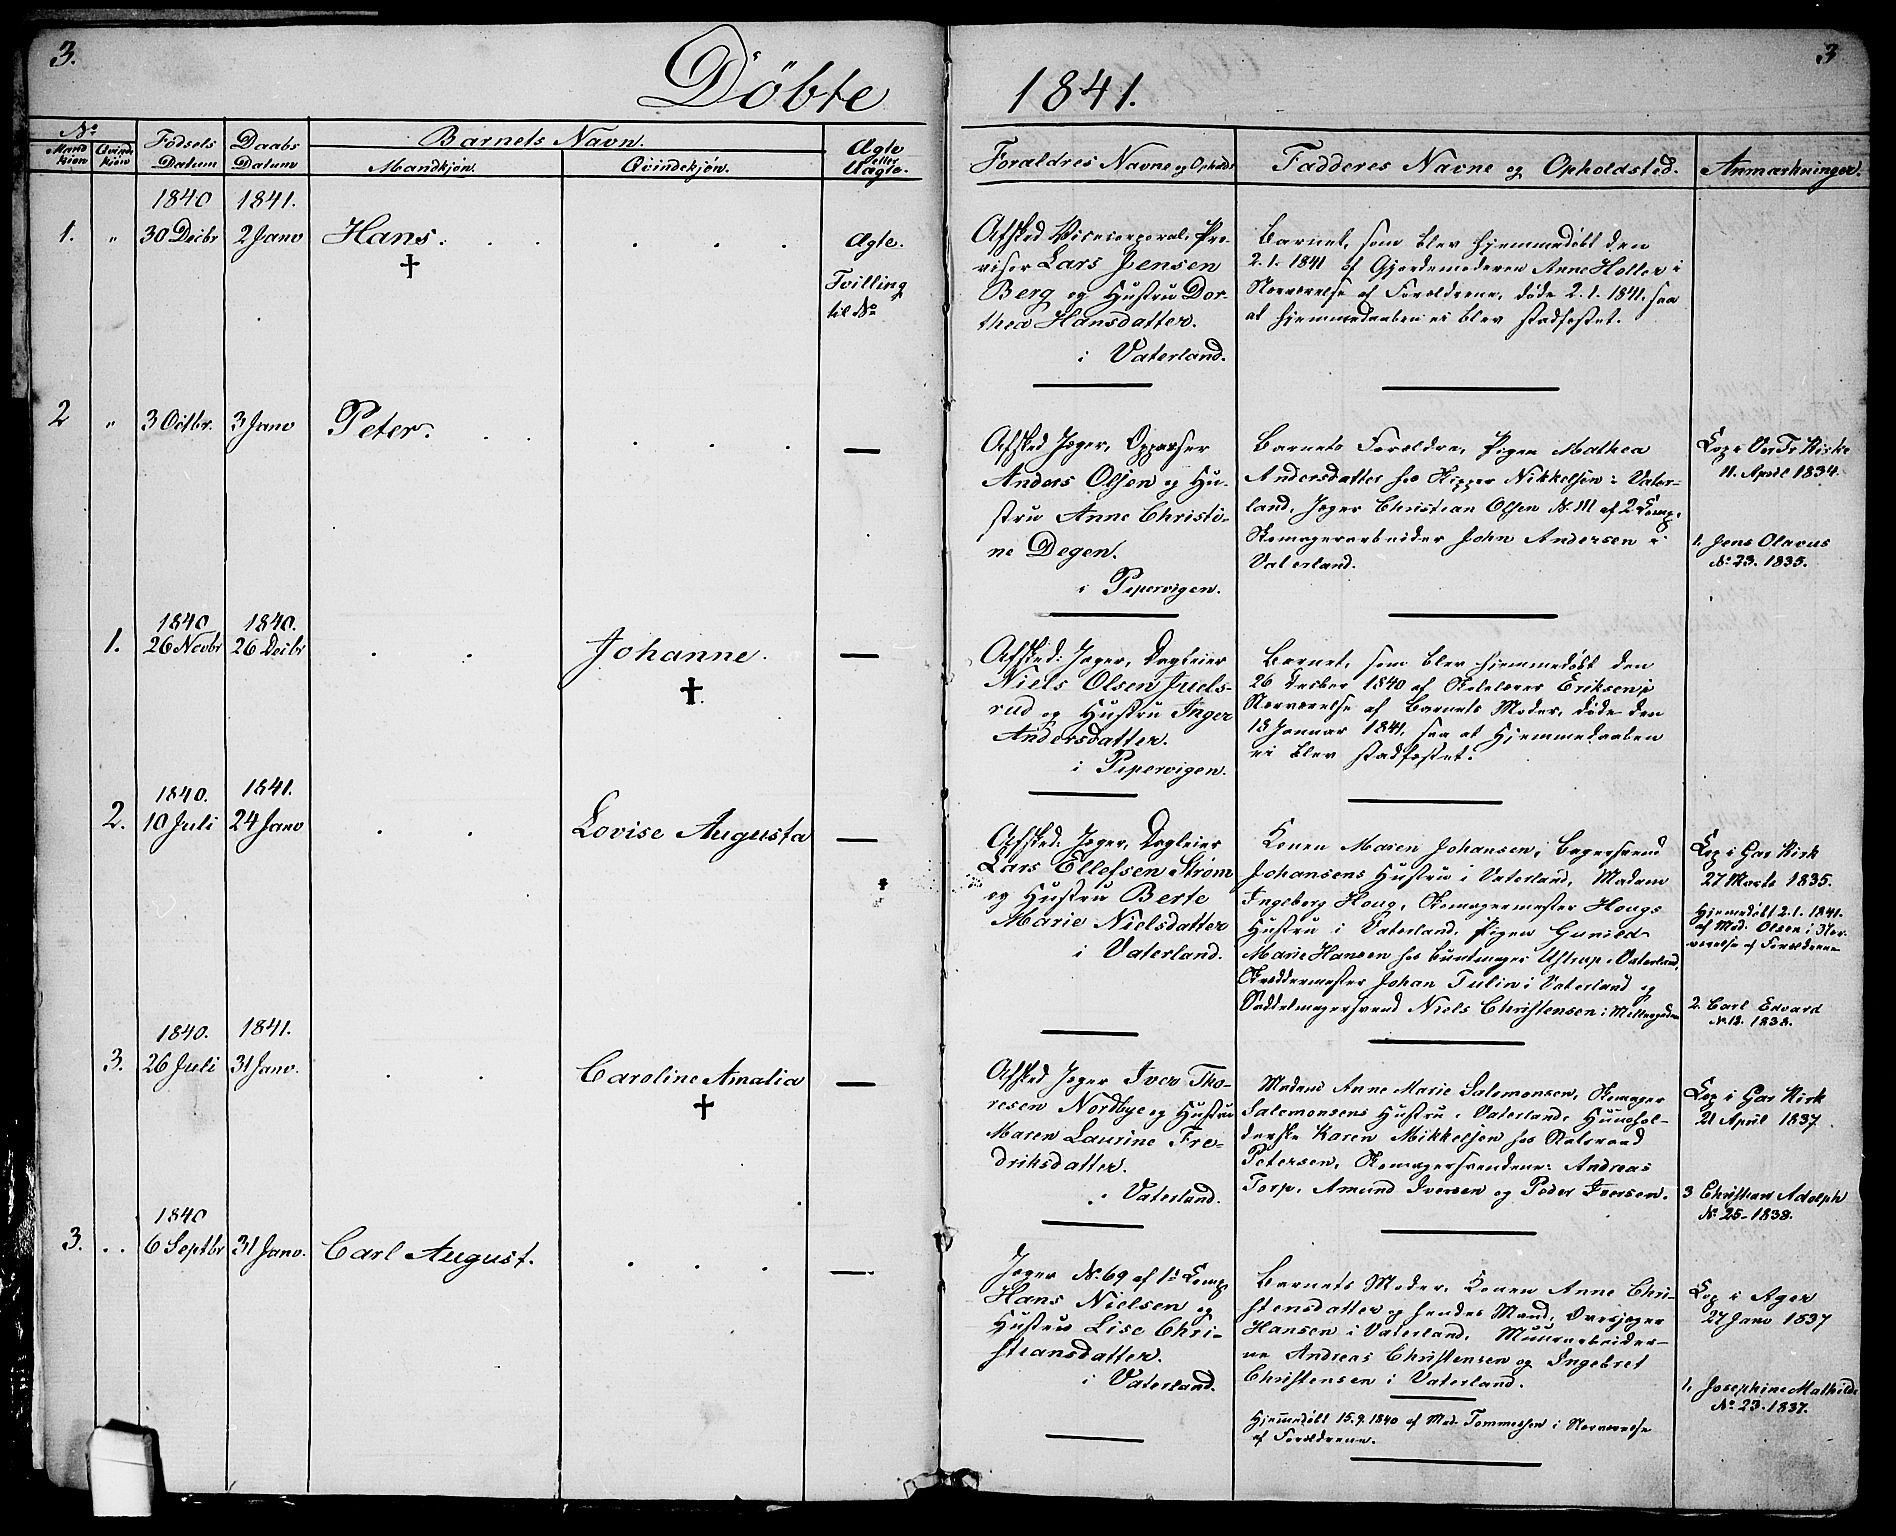 3.
3
Döbte
1841.
No
Mand kiön
Qvinde kiön
Födsels Datum
Daabs Datum
Barnets Navn.
Mandkjön.
Qvindekjön.
Ægte eller Uægte.
Foræld­res Navne og Opholds
Fadderes Navne og Opholdsted.
Anmærkninger.
1840
1841.
1.
"
30 Decbr
2 Janv
Hans.
Ægte.
Tvilling
til No
Afsked Vicecorporal,
Lars Jensen
Berg og Hustru Dor-
thea Hansdatter.
i Vaterland.
Barnet, som blev hjemmedöbt den
2.1.1841 af Gjordemoderen Anne Holler i
Nærværelse af Forældrene, döde 2.1.1841, saa
at Hjemmedaaben ei blev stadfæstet.
2
"
3 Octbr.
3 Janv
Peter.
Afsked Jæger, Oppasser
Anders Olsen og Hu-
stru Anne Christi-
ne Degen.
i Pipervigen.
Barnets Forældre, Pigen Mathea
Andersdatter hos Nikkelsen i Vater-
land, Jæger Christian Olsen No 111 af 2 Comp.
Skomagerarbeider John Andersen i
Vaterland.
Cop i Vor Fr Kirke
11. April 1834.
1. Jens Olavus
No 23. 1835.
1840
1840.
1.
26 Novbr
26 Decbr
Johanne.
Afsked: Jæger, Dagleier
Niels Olsen Juels-
rud og Hustru Inger
Andersdatter.
i Pipervigen.
Barnet, som blev hjemmedöbt den
26 Decbr 1840 af Skolelærer Eriksen i
Nærværelse af Barnets Moder, döde den
18 Januar 1841, saa at Hjemmedaaben
ei blev stadfæstet.
1840.
1841.
2.
10 Juli
24 Janv
Lovise Augusta
Afsked: Jæger, Dagleier
Lars Ellefsen Ström
og Hustru Berte
Marie Nielsdatter
i Vaterland.
Konen Maren Johansen, Bagersvend
Johansens Hustru i Vaterland, Madam
Ingeborg Houg, Skomagermester Hougs
Hustru i Vaterland, Pigen Gunild
Marie Hansen hos Buntmager Ustrup i Vaterland,
Skreddermester Johan Tulin i Vaterland og
Saddelmagersvend Niels Christensen i
Cop i Gar Kirk
27 Marts 1835.
Hjemmedöbt 2.1.1841.
af Mad. Olsen i Nær-
værelse af Forældrene
2. Carl Edvard
No 18. 1838.
1840.
1841.
3.
26 Juli
31 Janv.
Caroline Amalia
Afsked Jæger Iver Tho-
resen Nordbye og Hustru
Maren Laurine Fre-
driksdatter.
i Vaterland.
Madam Anne Marie Salomonsen, Skomager
Salomonsens Hustru i Vaterland, Huushol-
derske Karen Mikkelsen hos Statsraad
Petersen, Skomagersvendene: Andreas
Torp, Amund Iversen og Peder Iversen.
Cop i Gar Kirk
21 April 1837.
3 Christian Adolph
No 25-1838.
1840
3.
6 Septbr
31 Janv.
Carl August.
Jæger No 69 af 1ste Comp
Hans Nielsen og
Hustru Lise Chri-
stiansdatter.
i Vaterland.
Barnets Moder, Konen Anne Chri-
stensdatter og hendes Mand, Overjæger
Hansen i Vaterland, Muurarbeider-
ne Andreas Christensen og Ingebret
Christensen i Vaterland.
Hjemmedöbt 15.9.1840 af Mad. Tommessen i Nærværelse
af Forældrene.
Cop i Ager
27 Janv 1837
1. Josephine Mathilde
No. 23. 1837.